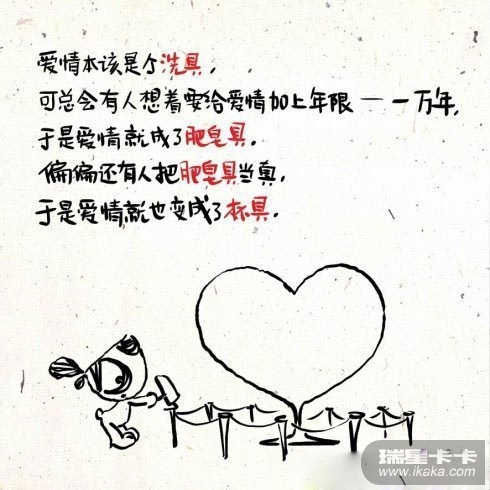 爱情本该是个洗具,
可总会有人想着要给爱情加上年限——一万年,
于是爱情就成了肥皂具.
偏偏还有人把肥皂具当真,
于是爱情就也变成了杯具.
瑞星卡卡
www.ikaka.com